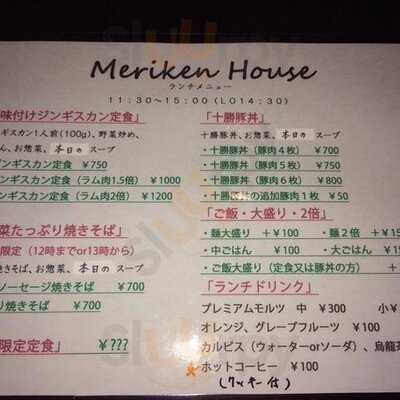 Meriken House
ランチメニュー
11:30~15:00 (LO14:30)
味付けジンギスカン定食」
ギスカン1人前(100g)、野菜炒め、
ん、お惣菜、本日の スープ
ンギスカン定食 ¥750
ンギスカン定食 (ラム肉1.5倍) ¥1000
ンギスカン定食 (ラム肉2倍) ¥1200
菜たっぷり焼きそば」
限定 (12時までor13時から)
焼きそば、お惣菜、本日の スープ
ソーセージ焼きそば ¥700
り焼きそば ¥700
限定定食」 ¥???
「十勝豚丼」
十勝豚丼、お惣菜、本日の スープ
・十勝豚丼 (豚肉4枚) ¥700
・十勝豚丼 (豚肉5枚) ¥750
・十勝豚丼 (豚肉6枚) ¥800
・十勝豚丼の追加豚肉1枚 ¥50
「ご飯・大盛り・2倍」
・麺大盛り +¥100 ・麺2倍 +¥15
・中ごはん ¥100 ・大ごはん ¥15
・ご飯大盛り (定食又は豚丼の方) +
「ランチドリンク」
プレミアムモルツ 中 ¥300 小¥
オレンジ、グレープフルーツ ¥100
カルピス (ウォーターorソーダ)、烏龍茶
ホットコーヒー ¥100
(クッキー付)